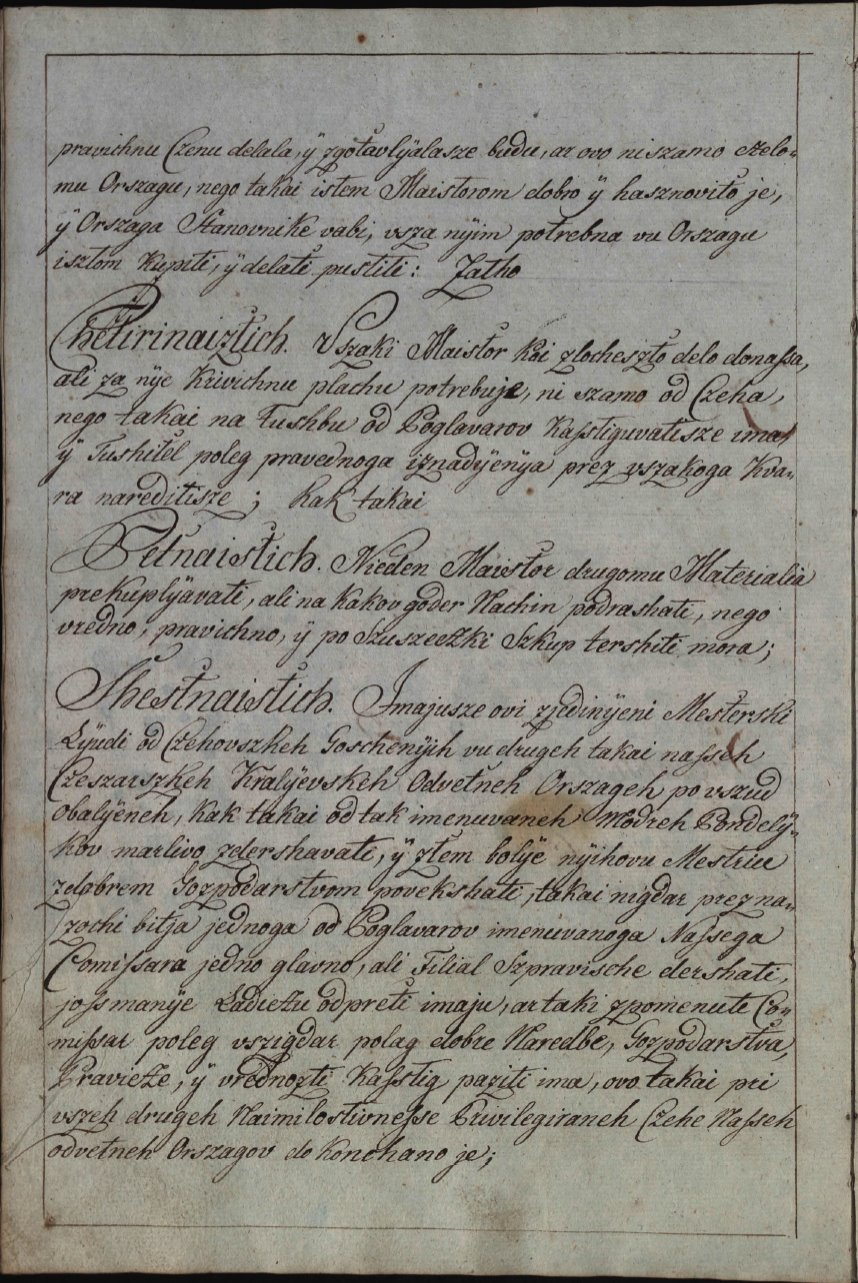 pravichnu Czenu delala, ÿ zgotavlÿalasze budu, ar ovo niszamo czelo=
mu Orszagu, nego takai istem Maistorom dobro ÿ hasznovito je,
ÿ Orszaga Stanovnike vabi, vsza nÿim potrebna vu Orszagu
isztom Kupiti, ÿ delati pustiti: Zatho
Chetirinaiztich. Vszaki Maistor koi zlocheszto delo donassa,
ali za nÿe Krivichnu plachu potrebuje, ni szamo od Czeha,
nego takai na Tushbu od Poglavarov Kasstiguvatisze ima,
ÿ Tushitel poleg pravednoga iznadÿenÿa prez vszakoga Kva=
ra nareditisze; kak takai
Petnaistich. Nieden Maistor drugomu Materialia
prekuplÿavati, ali na kakov goder Nachin podrashati, nego
vredno, pravichno, ÿ po Szuszeczki Szkup tershiti mora;
Shestnaistich. Imajusze ovi zjedinÿeni Mesterski
Lÿudi od Czehovszkeh Goschenÿih vu drugeh takai nasseh
Czeszarszkeh Kralÿevskeh Odvetneh Orszageh po vszud
obalÿeneh, kak takai od tak imenuvaneh Modreh Pondelÿ=
kov marlivo zdershavati, ÿ ztem bolÿe nÿihovu Mestriu
zdobrem Gozpodarstvom povekshati, takai nigdar prez na=
zochi bitja jednoga od Poglavarov imenuvanoga Nassega
Comissara jedno glavno, ali Filial Szpravische dershati,
joss manÿe Ladiczu odpreti imaju, ar taki zpomenute Co=
missar poleg vszigdar polag dobre Naredbe, Gozpodarstva,
Pravicze, ÿ vrednozti Kasstig paziti ima, ovo takai pri
vszeh drugeh Naimilostivnesse Privilegiraneh Czehe Nasseh
odvetneh Orszagov do konchano je;